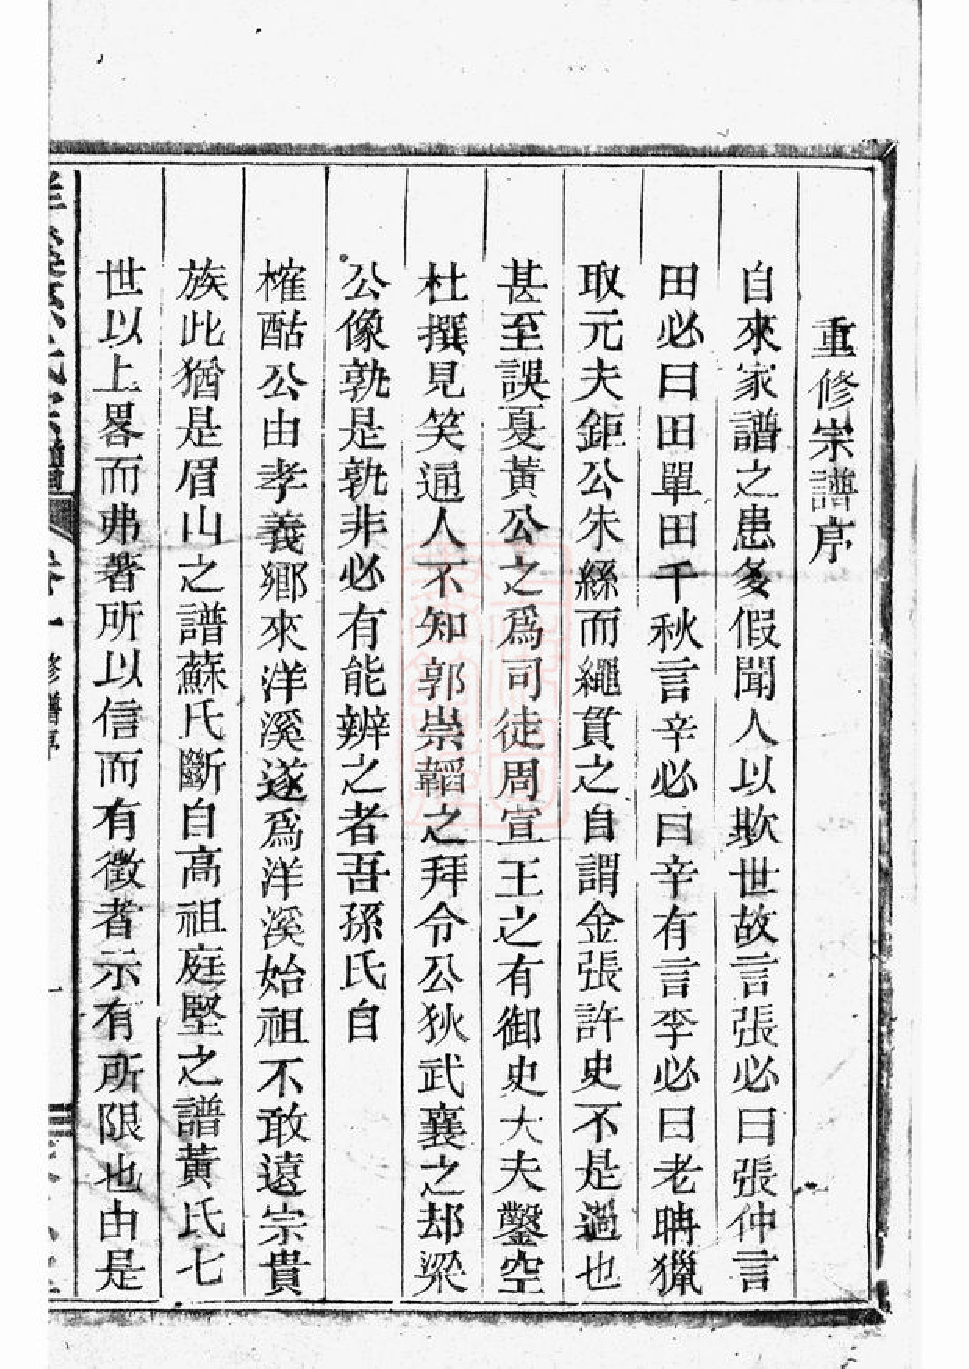 重修宗譜序
自來家譜之患多假聞人以欺世故言張必曰張仲言
田必曰田單田千秋言辛必曰辛有言李必曰老聃獵
取元夫鉅公朱絲而繩貫之自謂金張許史不是過也
甚至誤夏黃公之爲司徒周宣王之有御史大夫鑿空
杜撰見笑通人不知郭崇韜之拜令公狄武襄之却梁
公像孰是孰非必有能辨之者吾孫氏自
榷酤公由孝義鄉來洋溪遂爲洋溪始祖不敢遠宗貴
族此猶是眉山之譜蘇氏斷自高祖庭堅之譜黃氏七
世以上畧而弗著所以信而有徵者示有所限也由是
氏宗譜 卷一 修譜序 一